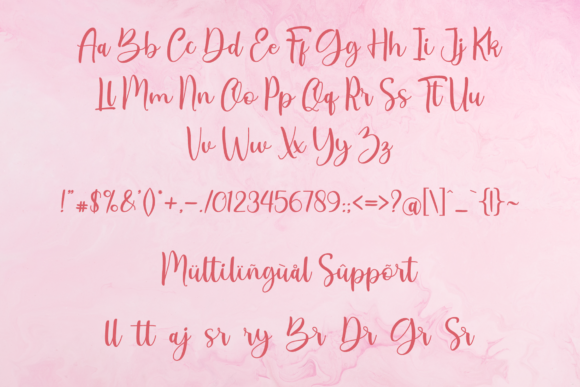 Aa Bb Cc Dd Ee Ff Gg Hh Ii Jj Kk
Ll Mm Nn Oo Pp Qq Rr Ss Tt Uu
Vv Ww Xx Yy Zz
!"#$%&'()*+,-./0123456789:;<=>?@[\]^_`{|}~
Mültilïñgùål Sûppõrt
ll tt aj sr ry Br Dr Gr Sr